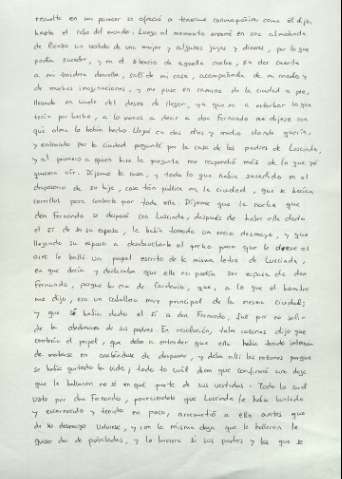 resuelto en mi parecer se ofreció a tenerme compañía como él dijo,
hasta el cabo del mundo. Luego al momento encerré en una almohada
de lienzo un vestido de mujer y algunas joyas y dineros, por lo que
podía suceder, y en el silencio de aquella noche, sin dar cuenta
a mi traidora doncella, salí de mi casa, acompañada de mi criado y
de muchas imaginaciones, y me puse en camino de la ciudad a pie,
llevada en vuelo del deseo de llegar, ya que no a estorbar lo que
tenía por hecho, a lo menos a decir a don Fernando me dijese con
qué alma lo había hecho. Llegué en dos días y medio donde quería,
y entrando por la ciudad pregunté por la casa de los padres de Luscinda,
y al primero a quien hice la pregunta me respondió más de lo que yo
quisiera oír. Díjome la casa, y todo lo que había sucedido en el
desposorio de su hija, cosa tan pública en la ciudad, que se hacían
corrillos para contarla por toda ella. Díjome que la noche que
don Fernando se desposó con Luscinda, después de haber ella dado
el sí de ser su esposa, le había tomado un recio desmayo, y que
llegando su esposo a desabrocharle el pecho para que le diese el
aire le halló un papel escrito de la misma letra de Luscinda,
en que decía y declaraba que ella no podía ser esposa de don
Fernando, porque lo era de Cardenio, que, a lo que el hombre
me dijo, era un caballero muy principal de la misma ciudad;
y que si había dado el sí a don Fernando, fue por no salir
de la obediencia de sus padres. En resolución, tales razones dijo que
contenía el papel, que daba a entender que ella había tenido intención
de matarse en acabándose de desposar, y daba allí las razones porque
se había quitado la vida; todo lo cual dicen que confirmó una daga
que le hallaron no sé en qué parte de sus vestidos. Todo lo cual
visto por don Fernando, pareciéndole que Luscinda le había burlado
y escarnecido y tenido en poco, arremetió a ella antes que
de su desmayo volviese, y con la misma daga que le hallaron la
quiso dar de puñaladas, y lo hiciera si sus padres y los que se